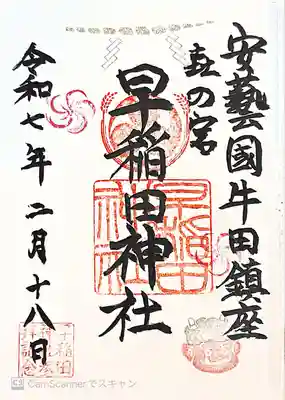 安藝國牛田鎮座
㐂の宮
早稲田神社
早稲田神社
令和七年二月十八日
CS CamScannerでスキャン